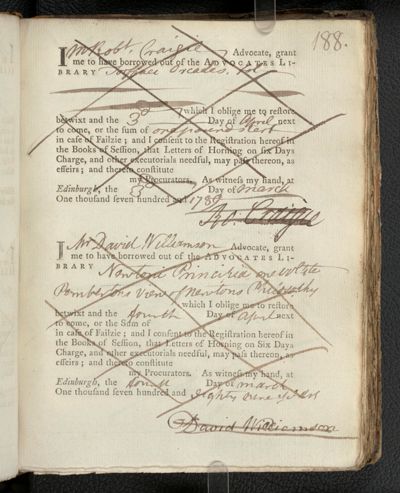 188.
I Mr Robt. Craigie Advocate, grant
me to have borrowed out of the ADVOCATES LI-
BRARY Torfaei Orcades, fol
which I oblige me to restore
betwixt and the 3d Day of April next
to come, or the sum of one pound Sterl
in case of Failzie; and I consent to the Registration hereof in
the Books of Session, that Letters of Horning on six Days
Charge, and other executorials needful, may pass thereon, as
effeirs; and thereto constitute
my Procurators. As witness my hand, at
Edinburgh, the 3d Day of March
One thousand seven hundred and 1789
Ro. Craigie
I Mr David Williamson Advocate, grant
me to have borrowed out of the ADVOCATES LI-
BRARY Newtoni Principia one vol 4to
Pembertons View of Newtons Philosophy
which I oblige me to restore
betwixt and the fourth Day of April next
to come, or the Sum of
in case of Failzie; and I consent to the Registration hereof in
the Books of Session, that Letters of Horning on Six Days
Charge, and other executorials needful, may pass thereon, as
effeirs; and thereto constitute
my Procurators. As witness my hand, at
Edinburgh, the fourth Day of March
One thousand seven hundred and Eighty nine years
David Williamson